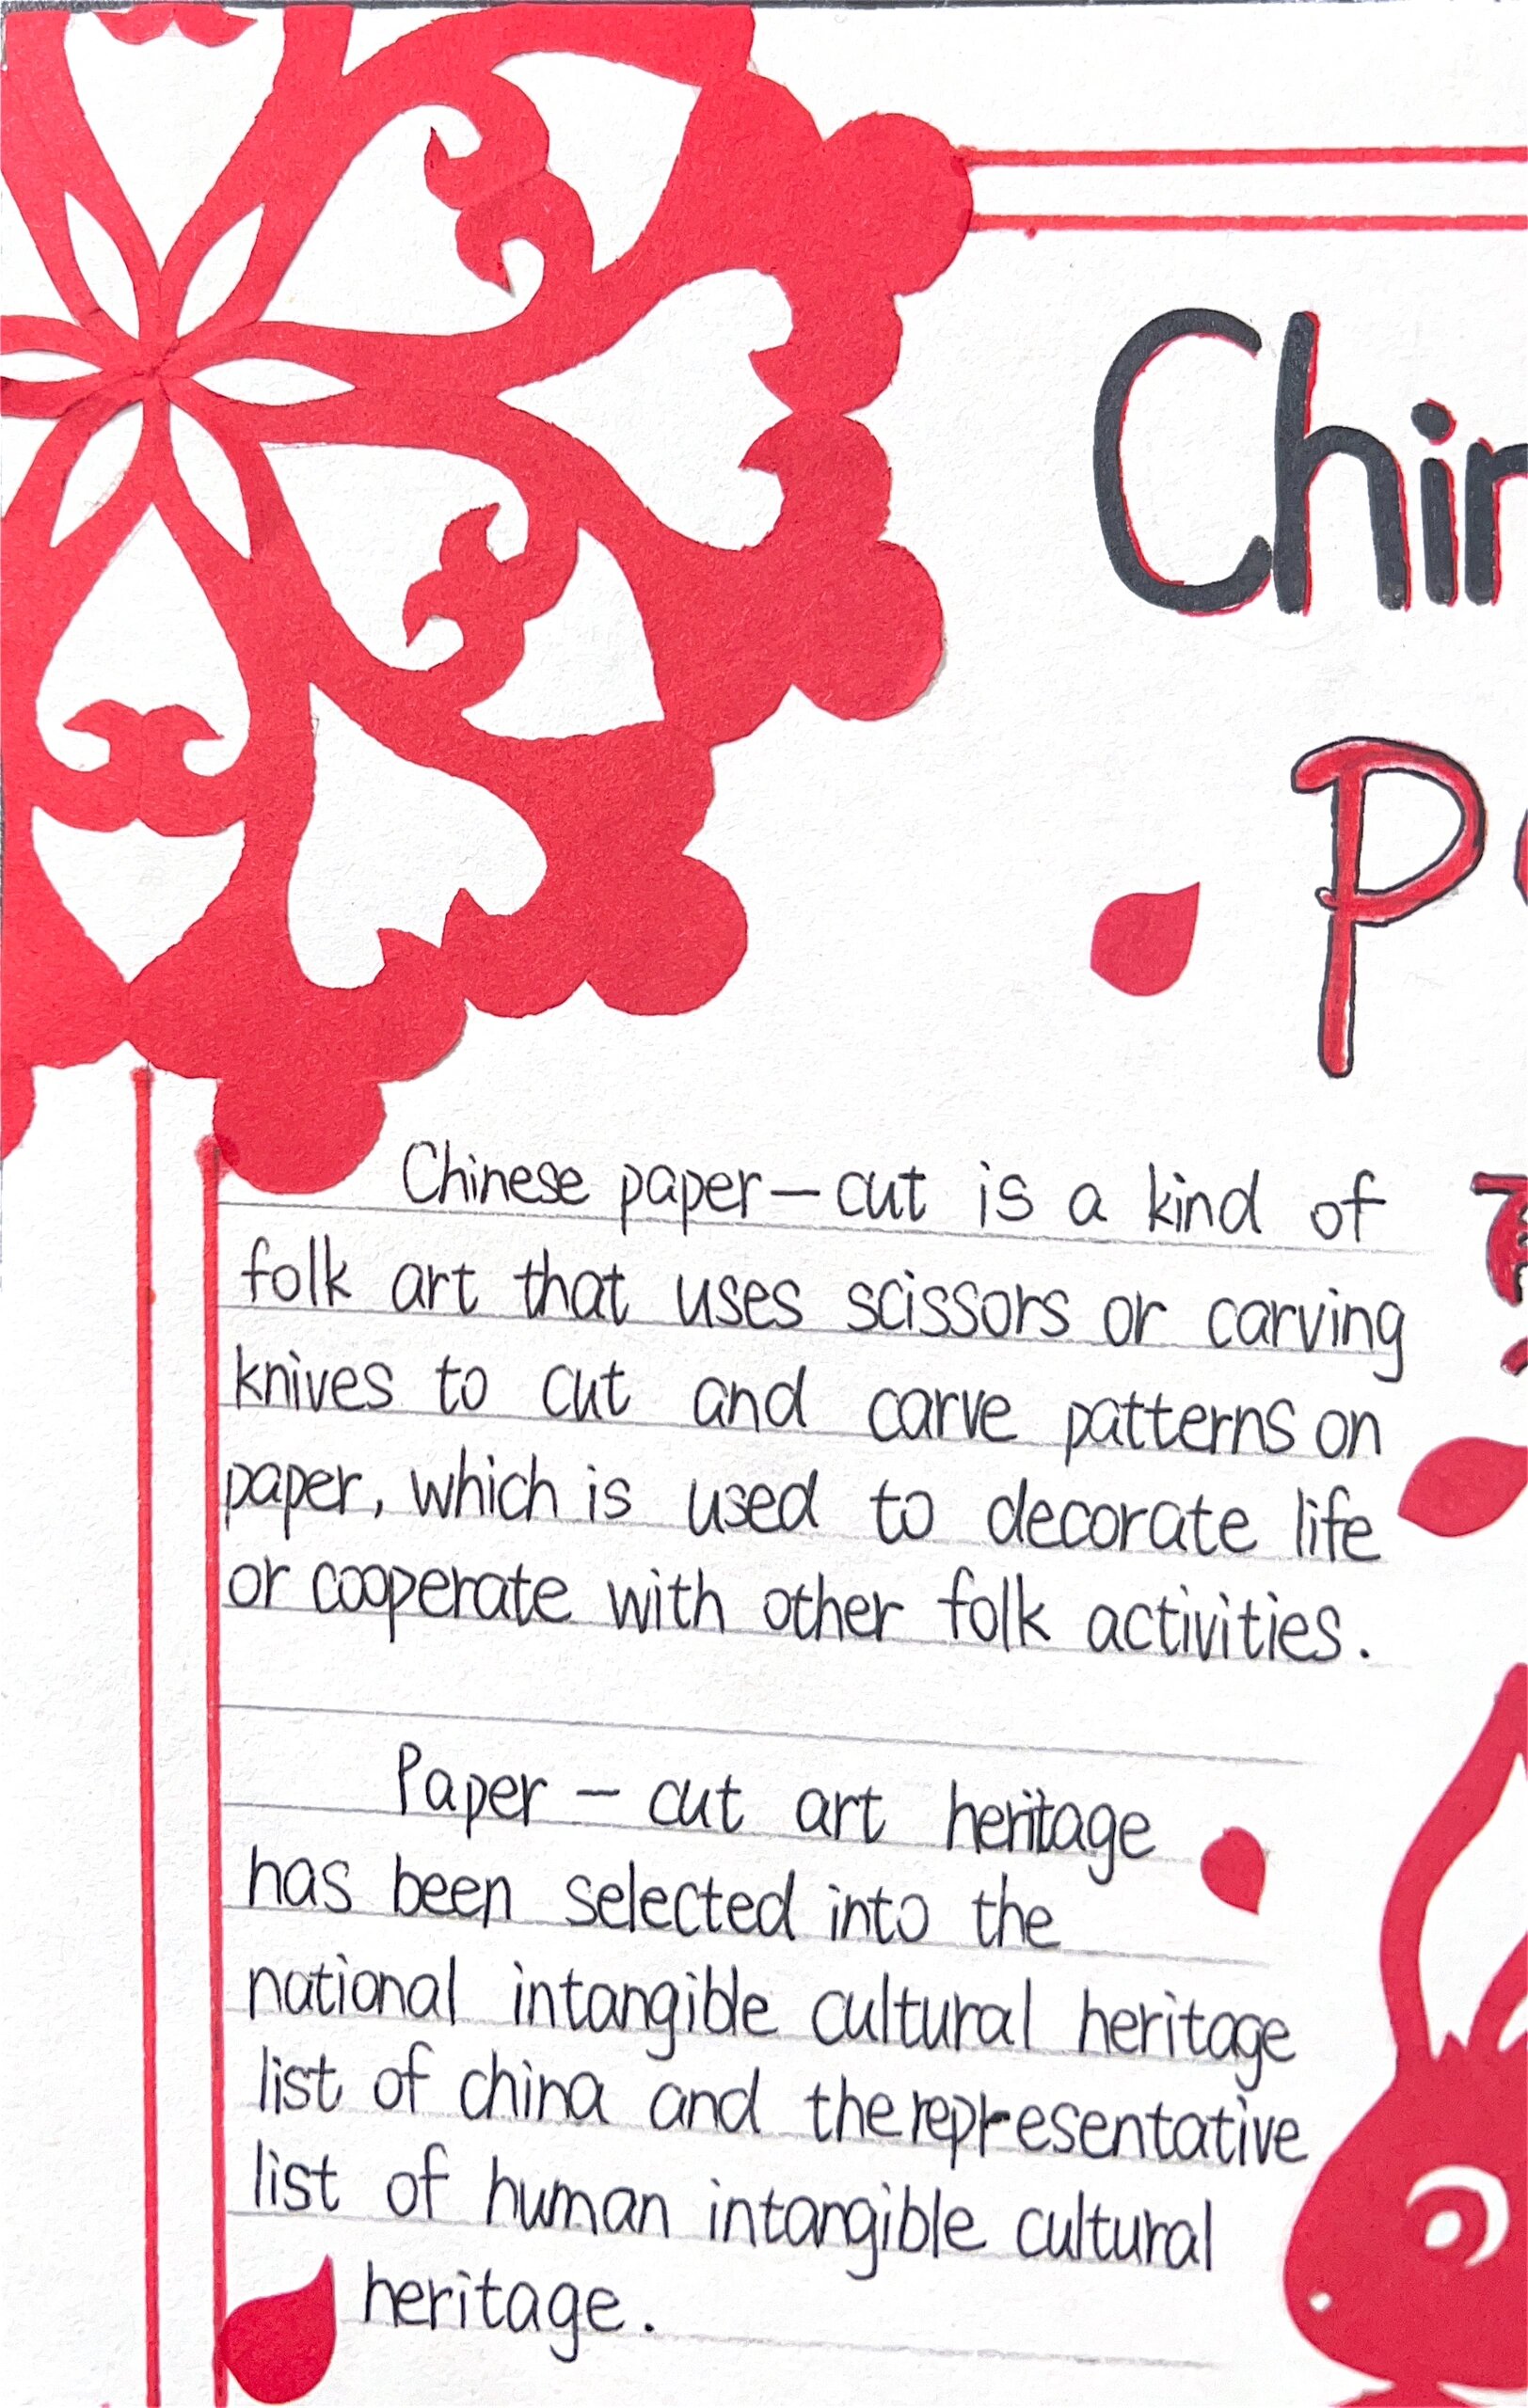 Chinese paper-cut is a kind of
folk art that uses scissors or carving
knives to cut and carve patterns on
paper, which is used to decorate life
or cooperate with other folk activities.
Paper-cut art heritage
has been selected into the
national intangible cultural heritage
list of china and the representative
list of human intangible cultural
heritage.